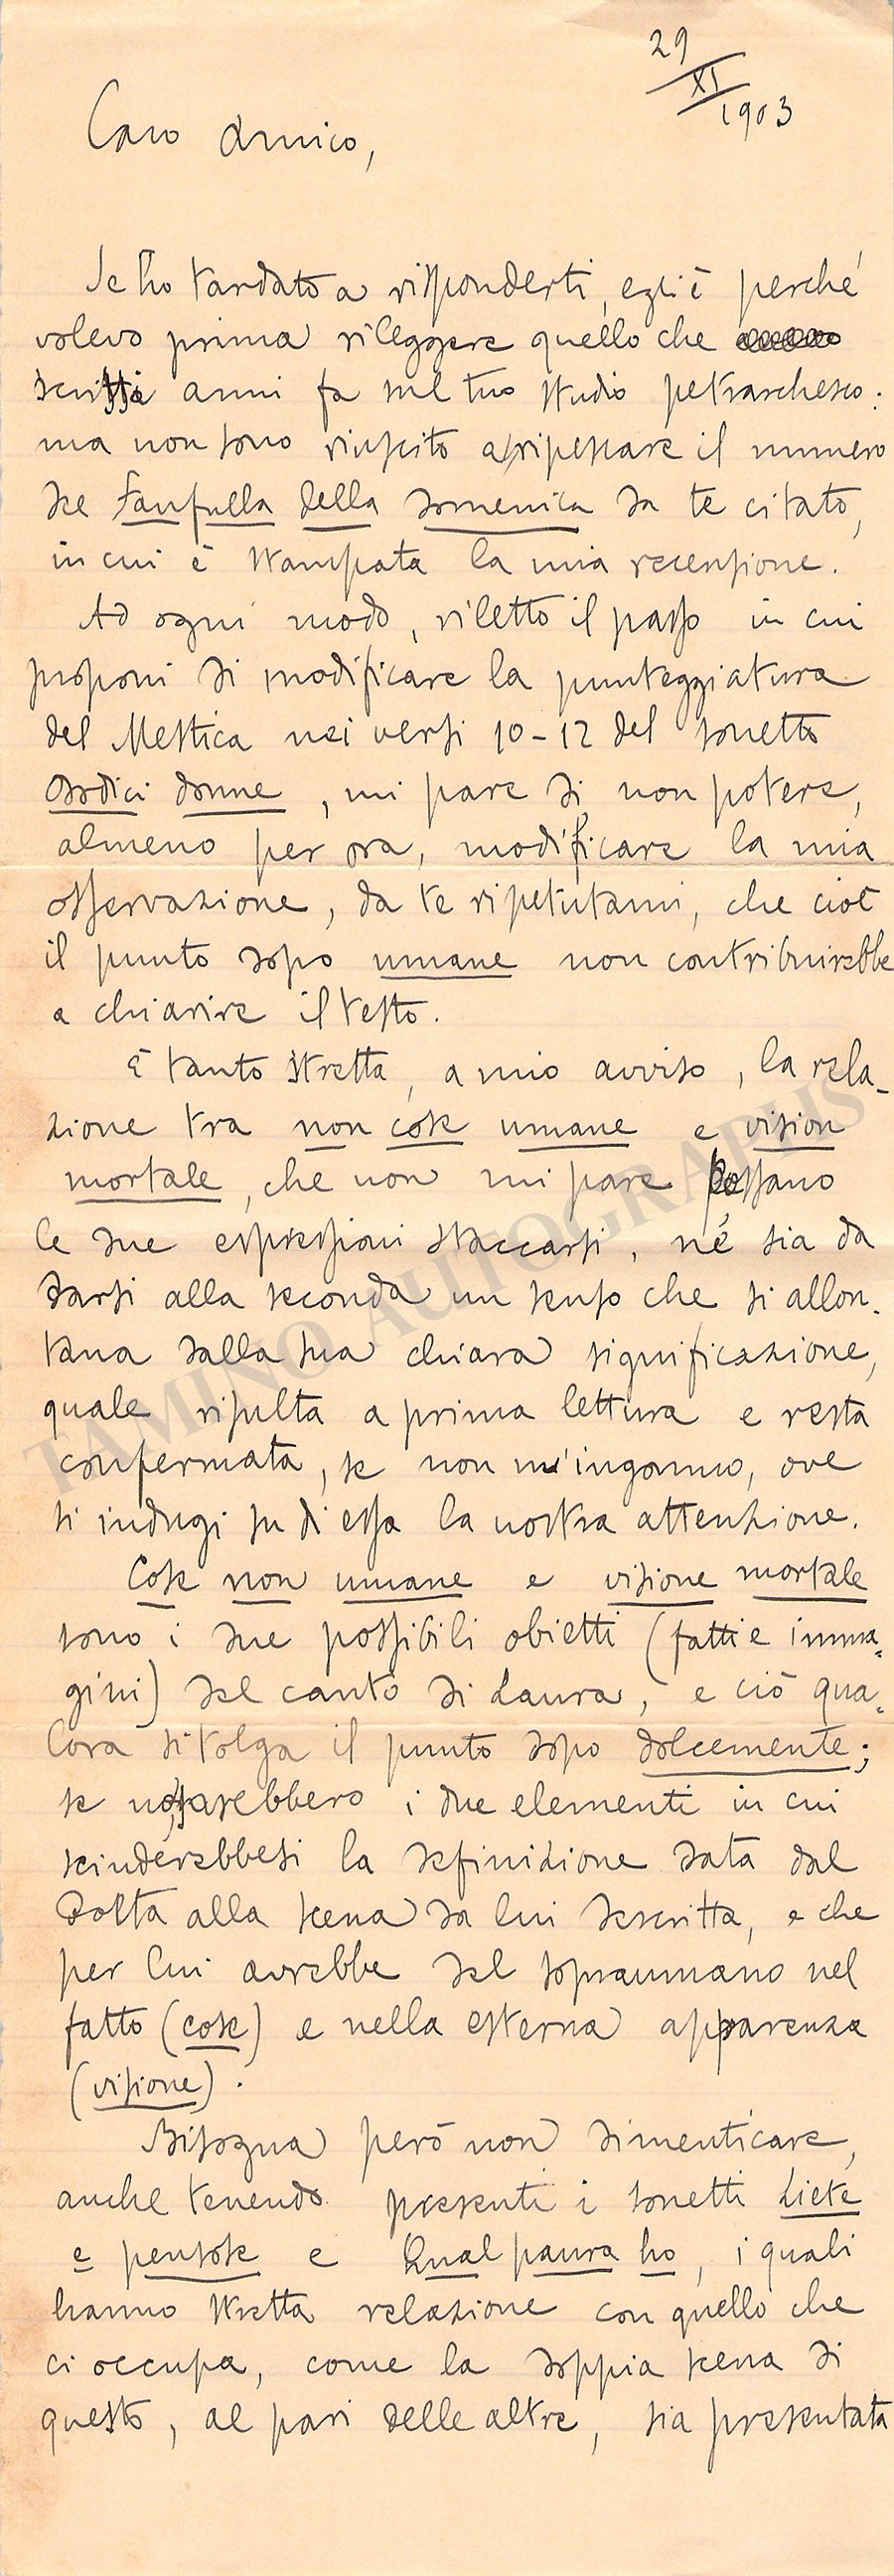 29
XI
1903
Caro Amico,
Se ho tardato a risponderti, egli è perché
volevo prima rileggere quello che
scrissi anni fa sul tuo studio petrarchesco:
ma non sono riuscito a ripescare il numero
de Fanfulla della domenica da te citato,
in cui è stampata la mia recensione.
Ad ogni modo, riletto il passo in cui
proponi di modificare la punteggiatura
del Mestica nei versi 10-12 del sonetto
Dodici donne, mi pare di non potere,
almeno per ora, modificare la mia
osservazione, da te ripetutami, che cioè
il punto dopo umane non contribuirebbe
a chiarire il testo.
È tanto stretta, a mio avviso, la rela-
zione tra non cose umane e vision
mortale, che non mi pare possano
le due espressioni staccarsi, né sia da
darsi alla seconda un senso che si allon-
tana dalla sua chiara significazione,
quale risulta a prima lettura e resta
confermata, se non m'inganno, ove
si indugi su di essa la nostra attenzione.
Cose non umane e visione mortale
sono i due possibili obietti (fatti e imma-
gini) del canto di Laura, e ciò qua-
lora si tolga il punto dopo dolcemente;
se no, sarebbero i due elementi in cui
scinderebbesi la definizione data dal
Poeta alla scena da lui descritta, e che
per lui avrebbe del sopraumano nel
fatto (cose) e nella esterna apparenza
(visione).
Bisogna però non dimenticare,
anche tenendo presenti i sonetti Liete
e pensose e Qual paura ho, i quali
hanno stretta relazione con quello che
ci occupa, come la doppia scena di
questo, al pari delle altre, sia presentata
TAMINO AUTOGRAPHS